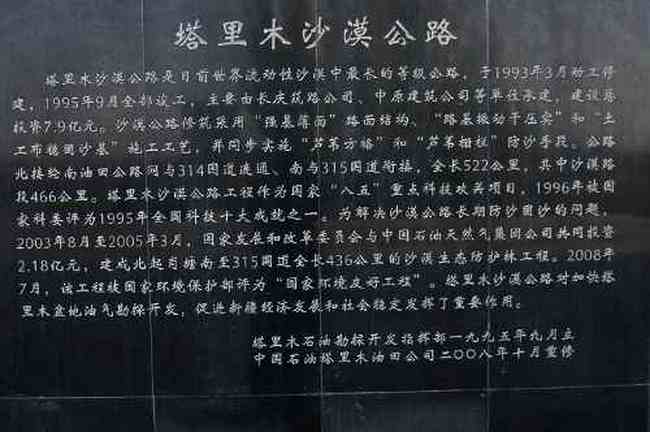 塔里木沙漠公路
塔里木沙漠公路是目前世界流动性沙漠中最长的等级公路，于1993年3月动工修
建，1995年9月全部竣工，主要由长庆筑路公司、中原建筑公司等单位承建，建设总
投资7.9亿元。沙漠公路修筑采用“强基薄面”路面结构、“路基振动干压实”和“土
工布稳固沙基”施工工艺，并同步实施“芦苇方格”和“芦苇栅栏”防沙手段。公路
北接轮南油田公路网与314国道连通、南与315国道衔接，全长522公里，其中沙漠路
段466公里。塔里木沙漠公路工程作为国家“八五”重点科技攻关项目，1996年被国
家科委评为1995年全国科技十大成就之一。为解决沙漠公路长期防沙固沙的问题，
2003年8月至2005年3月，国家发展和改革委员会与中国石油天然气集团公司共同投资
2.18亿元，建成北起肖塘南至315国道全长436公里的沙漠生态防护林工程。2008年
7月，该工程被国家环境保护部评为“国家环境友好工程”。塔里木沙漠公路对加快塔
里木盆地油气勘探开发，促进新疆经济发展和社会稳定发挥了重要作用。
塔里木石油勘探开发指挥部一九九五年九月立
中国石油塔里木油田公司二〇〇八年十月重修